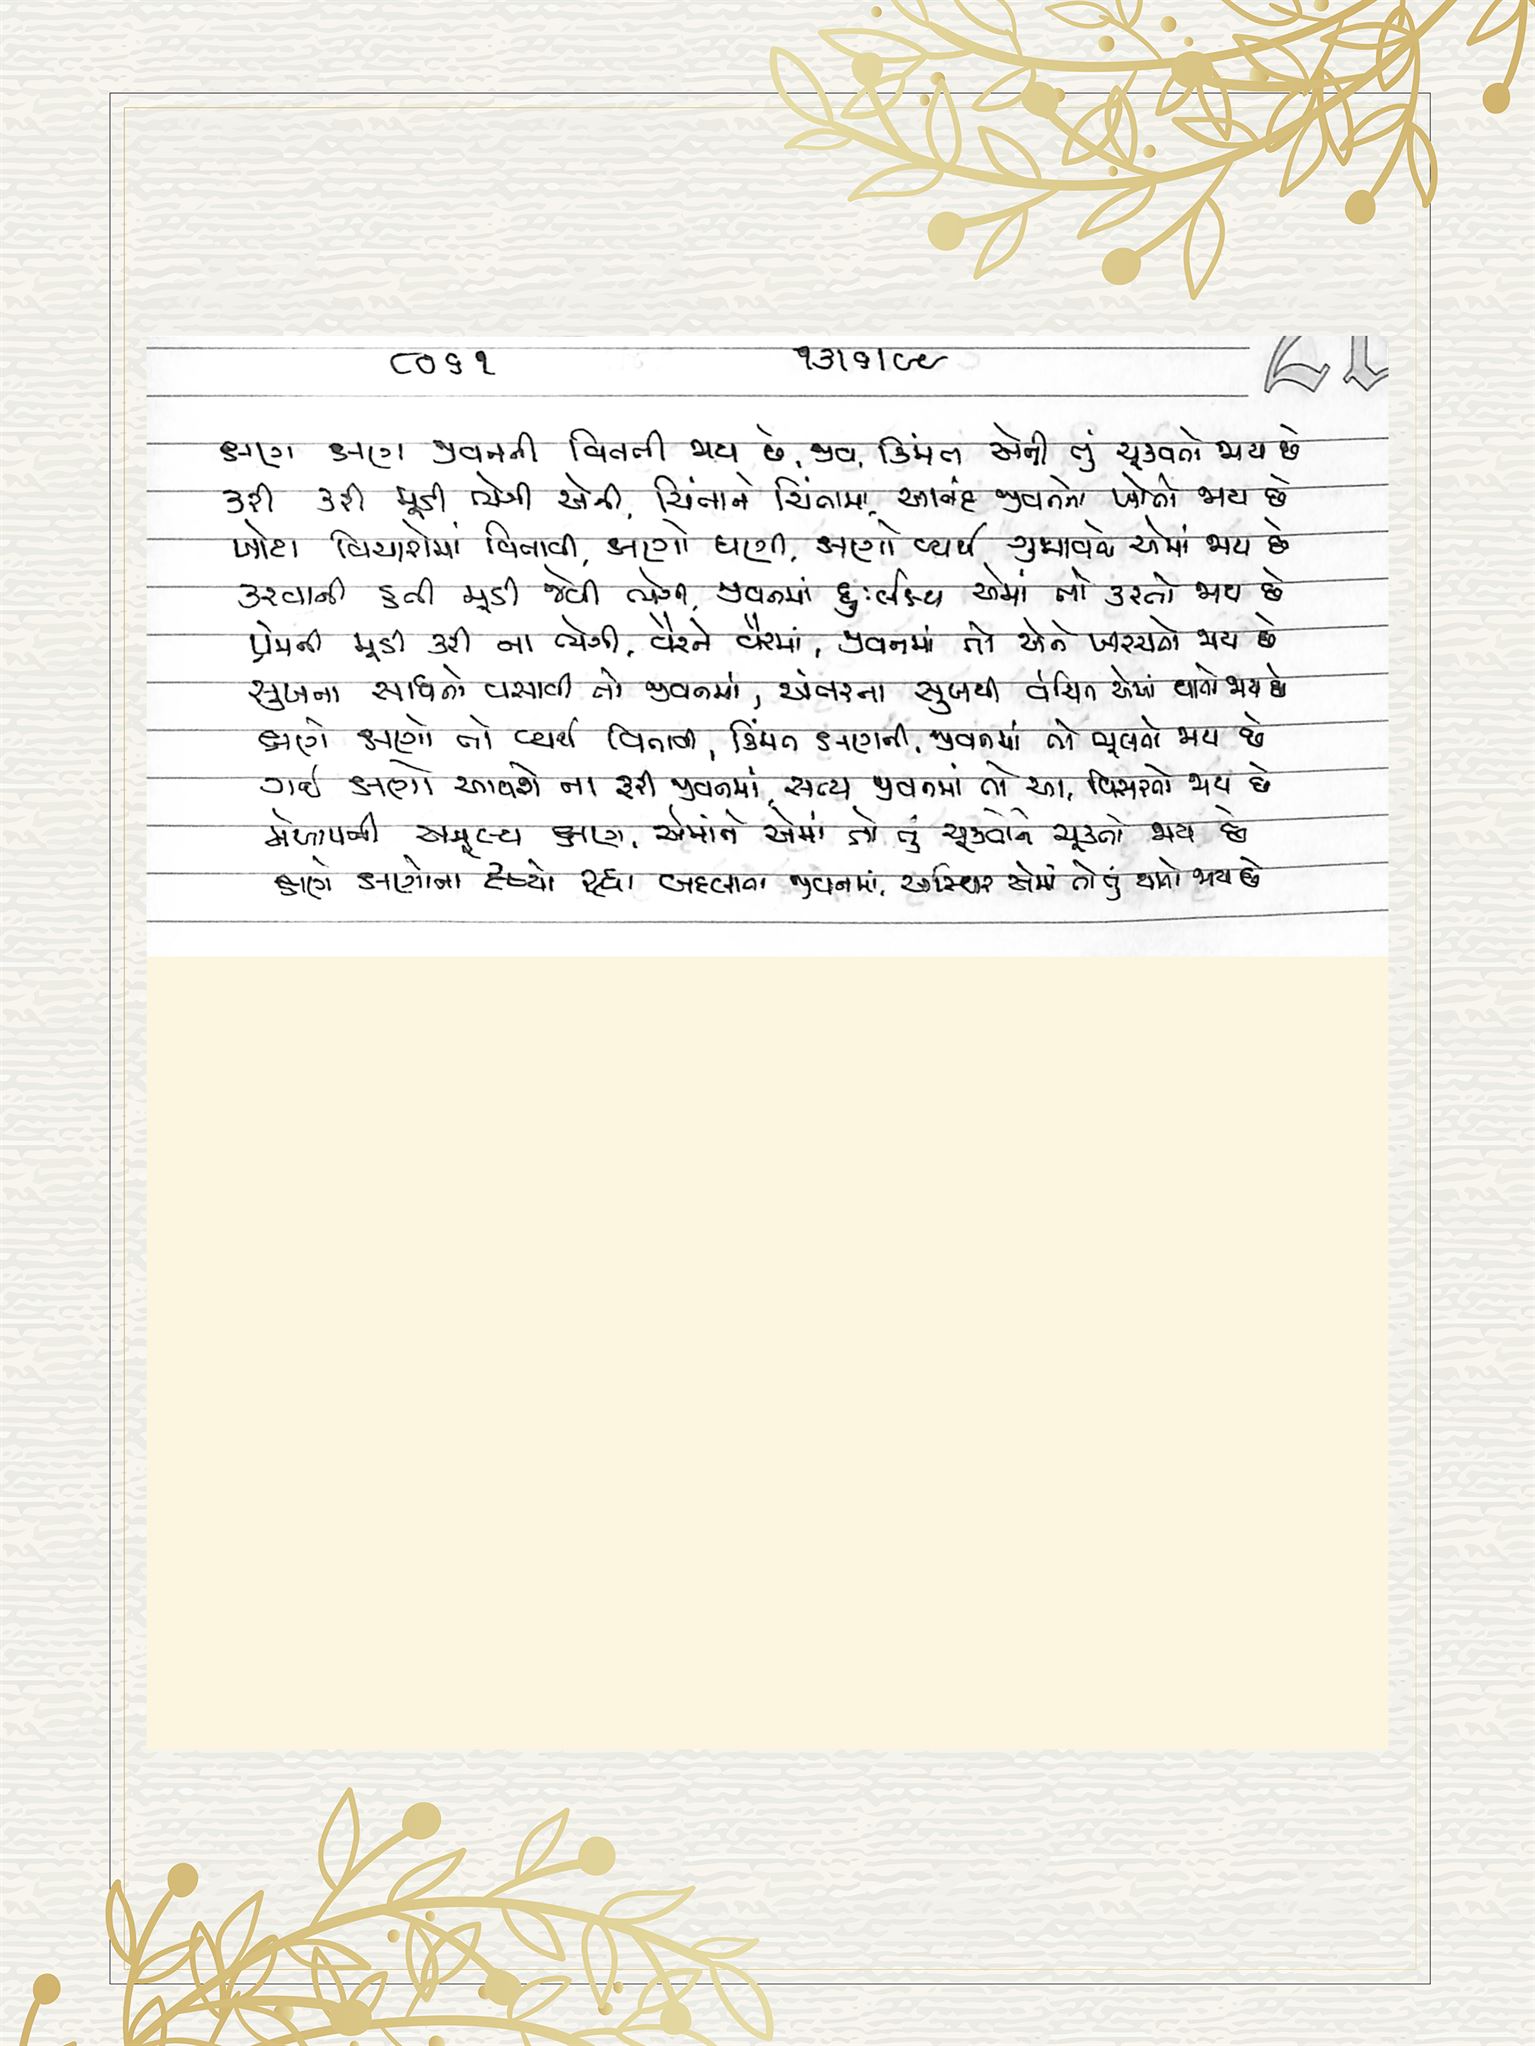 ૮૦૬૧ ૧૩/૬/૯૯
ક્ષણ ક્ષણ જીવનની વિતતી જાય છે, જીવ, કિંમત એની તું ચૂકવતો જાય છે
કરી કરી મૂડી ભેગી એની, ચિંતાને ચિંતામાં, આનંદ જીવનનો ખોતો જાય છે
ખોટા વિચારોમાં વિતાવી, ક્ષણો ઘણી, ક્ષણો વ્યર્થ ગુમાવતો એમાં જાય છે
કરવાની હતી મૂડી જેવી ભેગી, જીવનમાં દુઃર્લક્ષ્ય એમાં તો કરતો જાય છે
પ્રેમની મૂડી કરી ના ભેગી, વૈરને વૈરમાં, જીવનમાં તો એને ખરચતો જાય છે
સુખના સાધનો વસાવી તો જીવનમાં, અંતરના સુખથી વંચિત એમાં થાતો જાય છે
ક્ષણે ક્ષણો તો વ્યર્થ વિતાવી, કિંમત ક્ષણની, જીવનમાં તો ભૂલતો જાય છે
ગઈ ક્ષણો આવશે ના ફરી જીવનમાં, સત્ય જીવનમાં તો આ, વિસરતો જાય છે
મેળાપની અમૂલ્ય ક્ષણ, એમાંને એમાં તો તું ચૂકતોને ચૂકતો જાય છે
ક્ષણે ક્ષણોના દૃશ્યો રહ્યા બદલાતા જીવનમાં, અસ્થિર એમાં તો તું થાતો જાય છે